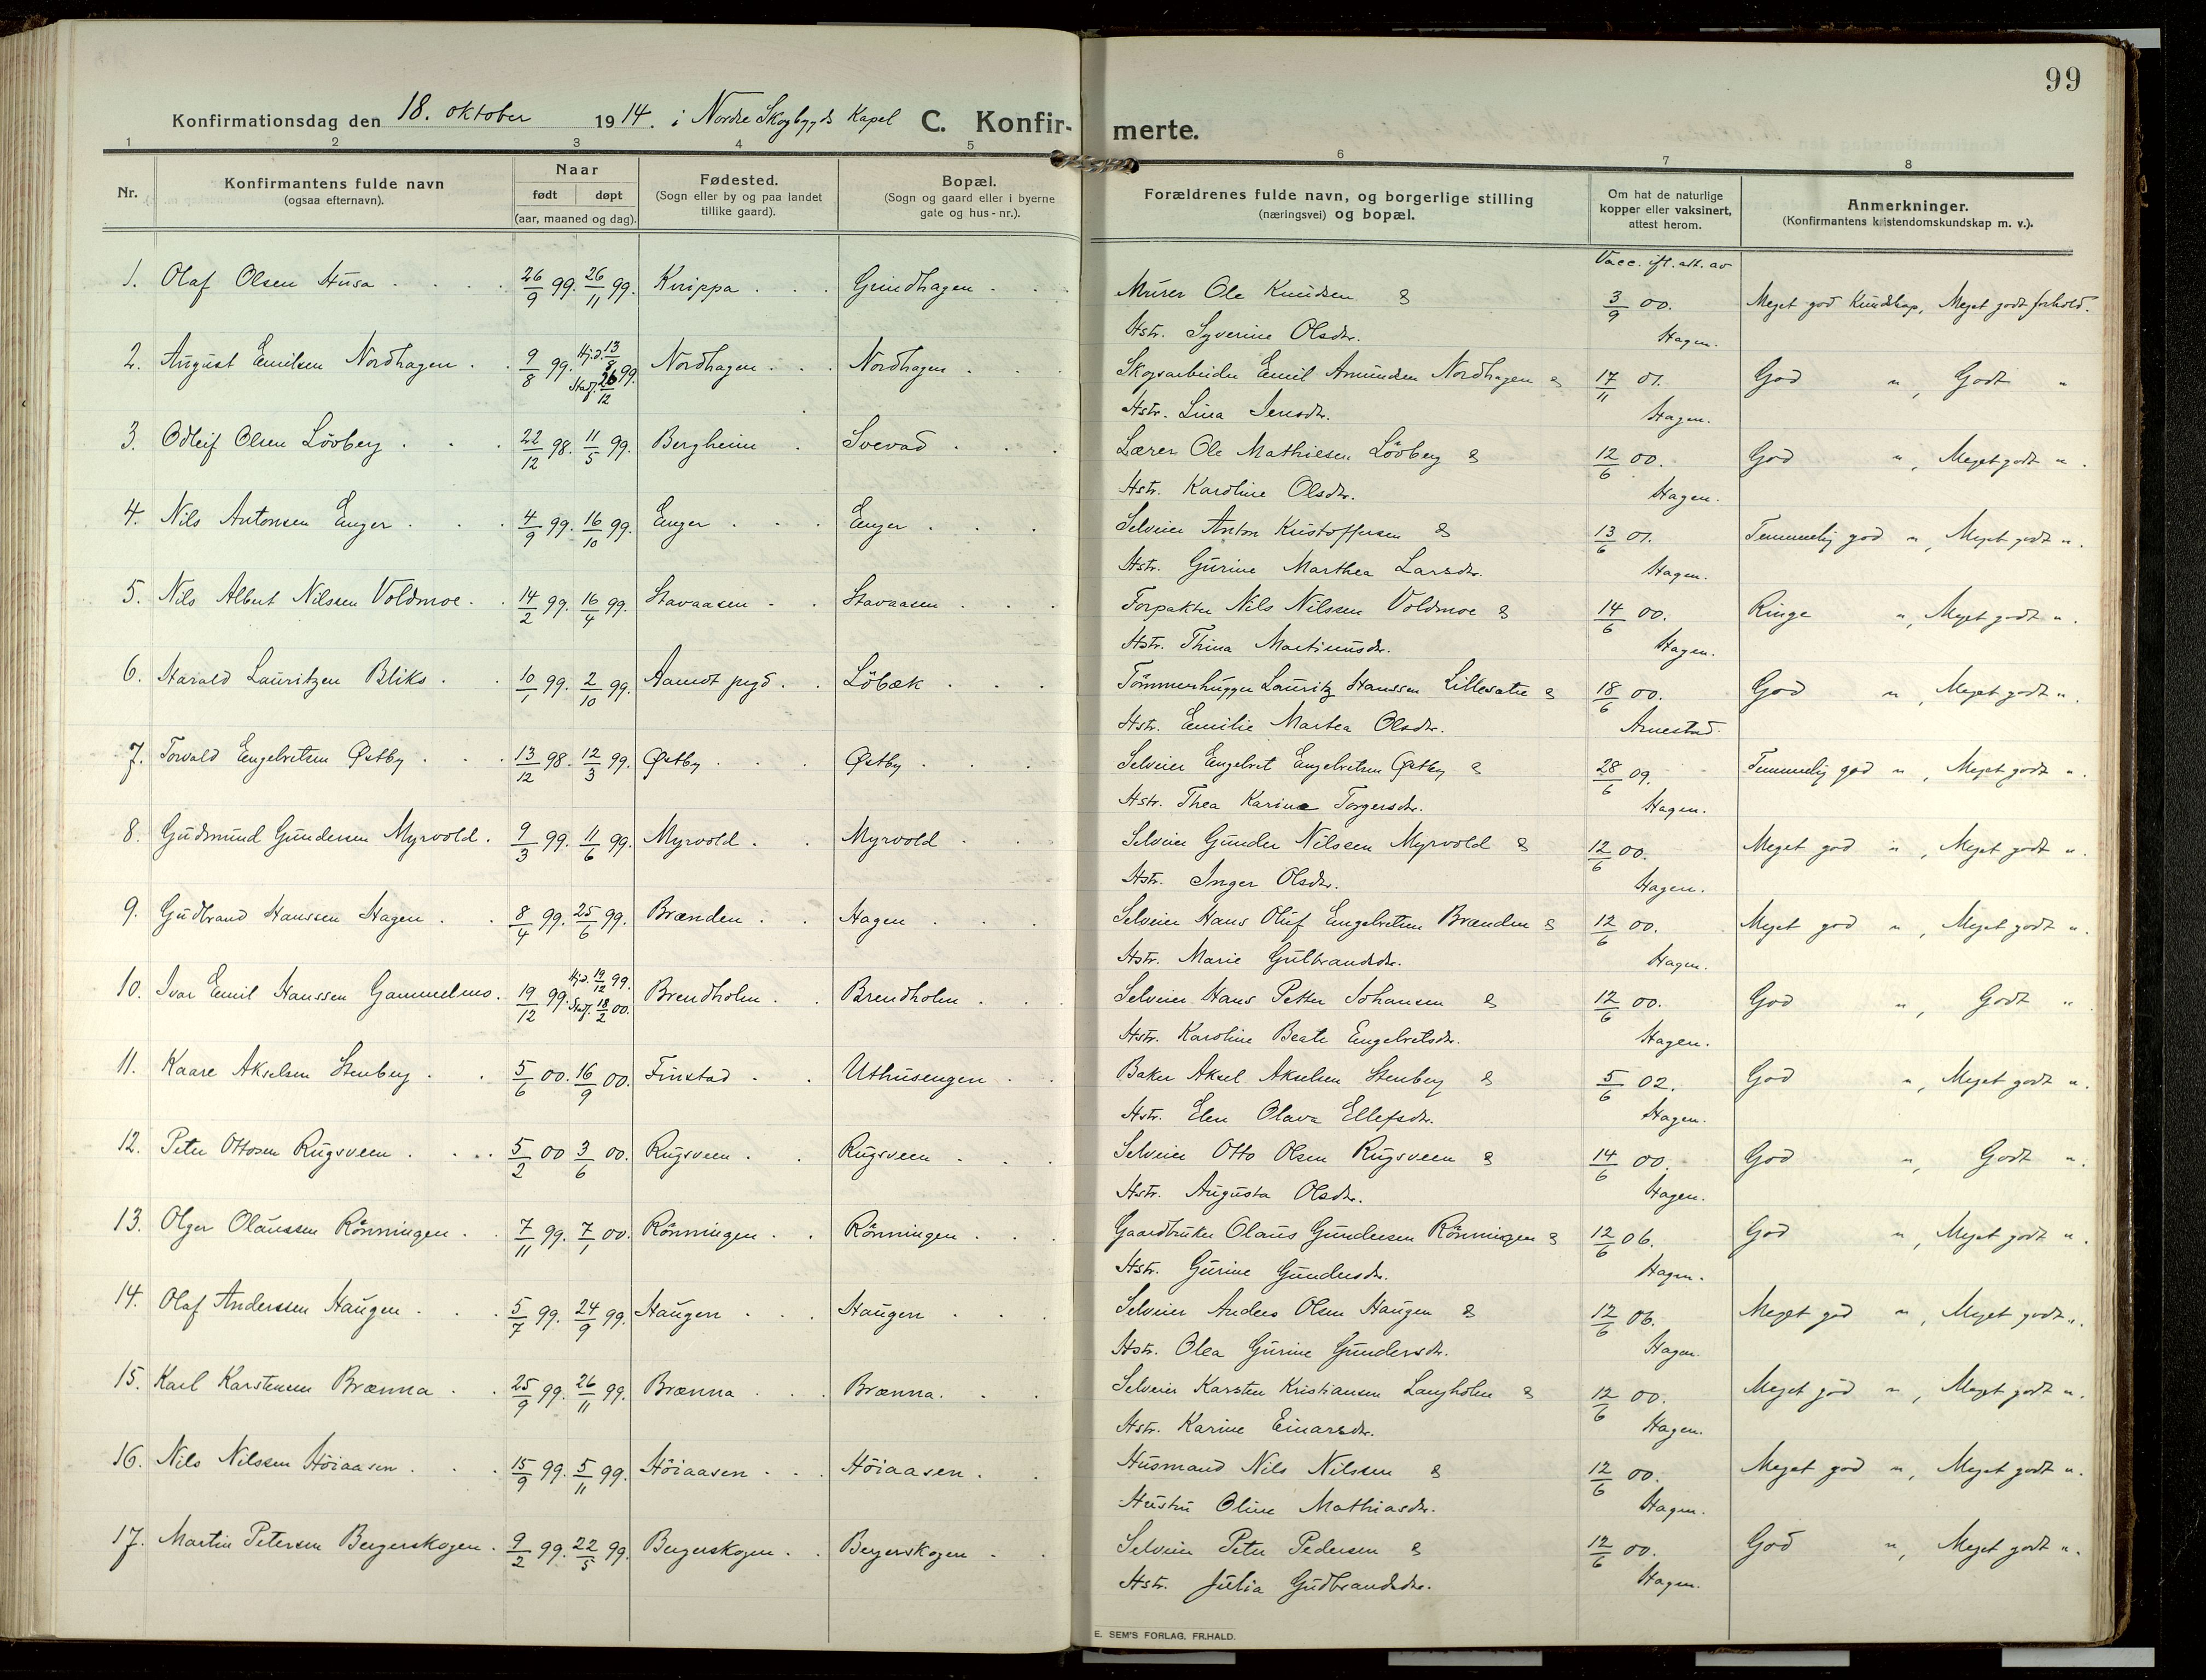 99
Konfirmationsdag den 18. oktober 1914. i Nordre Skogbygds Kapel C. Konfir- merte.
1 2 3 4 5 6 7 8
Nr. Konfirmantens fulde navn (ogsaa efternavn). Naar født døpt (aar, maaned og dag). Fødested. (Sogn eller by og paa landet tillike gaard). Bopæl. (Sogn og gaard eller i byerne gate og hus-nr.). Forældrenes fulde navn, og borgerlige stilling (næringsvei) og bopæl. Om hat de naturlige kopper eller vaksinert, attest herom. Anmerkninger. (Konfirmantens kristendomskundskap m. v.).
Vacc. ifl. att. av
1. Olaf Olsen Husa 26/9 99. 26/11 99. Knippa Grindhagen Murer Ole Knudsen & 3/9 00. Meget god Kundskap, Meget godt forhold.
Hstr. Syverine Olsdtr. Hagen.
2. August Emilsen Nordhagen 9/8 99. Hj.d. 13/8 Stadf. 26/12 99. Nordhagen Nordhagen Skogsarbeider Emil Amundsen Nordhagen & 17/11 01. God " , Godt "
Hstr. Lina Jensdtr. Hagen.
3. Odleif Olsen Lövberg 22/12 98. 11/5 99. Bergheim Svevad Lærer Ole Mathiesen Lövberg & 12/6 00. God " , Meget godt " .
Hstr. Karoline Olsdtr. Hagen.
4. Nils Antonsen Enger 4/9 99. 16/10 99. Enger Enger Selveier Anton Kristoffersen & 13/6 01. Temmelig god " , Meget godt " .
Hstr. Gurine Marthea Larsdtr. Hagen.
5. Nils Albert Nilssen Voldmoe 14/2 99. 16/4 99. Stavaasen Stavaasen Forpakter Nils Nilssen Voldmoe & 14/6 00. Ringe " , Meget godt " .
Hstr. Thina Martinusdtr. Hagen.
6. Harald Lauritzen Bliks 10/1 99. 2/10 99. Aamot prgd. Löbæk Tömmerhugger Lauritz Hanssen Lillesætre & 18/6 00. God " , Meget godt " .
Hstr. Emilie Martea Olsdtr. Arnestad.
7. Torvald Engebretsen Østby 13/12 98. 12/3 99. Østby Østby Selveier Engebret Engebretsen Østby & 28/6 09. Temmelig god " , Meget godt " .
Hstr. Thea Karine Torgersdtr. Hagen.
8. Gudmund Gundersen Myrvold. 9/3 99. 11/6 99. Myrvold Myrvold Selveier Gunder Nilssen Myrvold & 12/6 00. Meget god " , Meget godt " .
Hstr. Inger Olsdtr. Hagen.
9. Gudbrand Hanssen Hagen 8/4 99. 25/6 99. Brænden Hagen Selveier Hans Oluf Engebretsen Brænden & 12/6 00. Meget god " , Meget godt " .
Hstr. Marie Gulbrandsdtr. Hagen.
10. Ivar Emil Hanssen Gammelmo. 19/12 99. Hj.d. 19/12 99. Stadf. 18/2 00. Brendholm Brendholm Selveier Hans Petter Johansen & 12/6 00. God " , Godt "
Hstr. Karoline Beate Engebretsdtr. Hagen.
11. Kaare Akselsen Stenberg 5/6 00. 16/9 00. Finstad Uthusengen Baker Aksel Akselsen Stenberg & 5/6 02. God " , Meget godt " .
Hstr. Elen Olava Ellefsdtr. Hagen.
12. Peter Ottosen Rugsveen 5/2 00 3/6 00. Rugsveen Rugsveen Selveier Otto Olsen Rugsveen & 14/6 00. God " , Godt " .
Hstr. Augusta Olsdtr. Hagen.
13. Olger Olaussen Rönningen 7/11 99. 7/1 00. Rönningen Rönningen Gaardbruker Olaus Gundersen Rönningen & 12/6 06. God " , Meget godt " .
Hstr. Gurine Gundersdtr. Hagen.
14. Olaf Anderssen Haugen 5/7 99. 24/9 99. Haugen Haugen Selveier Anders Olsen Haugen & 12/6 06. Meget god " , Meget godt " .
Hstr. Olea Gurine Gundersdtr. Hagen.
15. Karl Karstensen Brænna 25/9 99. 26/11 99. Brænna Brænna Selveier Karsten Kristiansen Langholm & 12/6 00. Meget god " , Meget godt " .
Hstr. Karine Einarsdtr. Hagen.
16. Nils Nilssen Höiaasen 15/9 99. 5/11 99. Höiaasen Höiaasen Husmand Nils Nilssen & 12/6 00. Meget god " , Meget godt " .
Hustru Oline Mathiasdtr. Hagen.
17. Martin Petersen Bergerskogen. 9/2 99. 22/5 99. Bergerskogen Bergerskogen Selveier Peter Pedersen & 12/6 00. God " , Meget godt " .
Hstr. Julia Gudbrandsdtr. Hagen.
E. SEM'S FORLAG, FR.HALD.